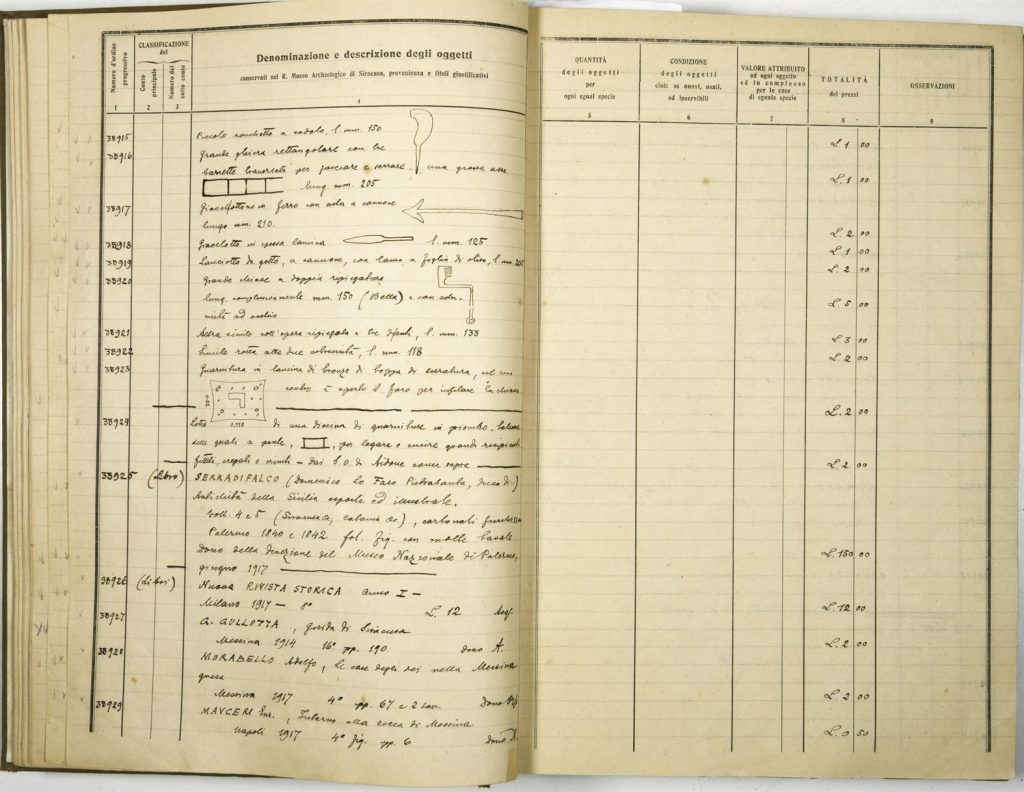 Numero d'ordine progressivo
CLASSIFICAZIONE del
Conto principale
Numero del sotto conto
Denominazione e descrizione degli oggetti
conservati nel R. Museo Archeologico di Siracusa, provenienza e titoli giustificativi
1 2 3 4
QUANTITÀ degli oggetti per ogni egual specie
CONDIZIONE degli oggetti cioè: se nuovi, usati, od inservibili
VALORE ATTRIBUITO ad ogni oggetto ed in complesso per le cose di eguale specie
TOTALITÀ dei prezzi
OSSERVAZIONI
5 6 7 8 9
38915 Piccolo ronchetto a codolo, l. mm. 150 L. 1 00
38916 Grande ghiera rettangolare con tre
barrette trasversali per fasciare e serrare una grossa asse
lung. mm. 205 L. 1 00
38917 Giavellottone in ferro con asta a cannone
lungo mm. 210. L. 2 00
38918 Giavelotto in spessa lamina l. mm. 125 L. 1 00
38919 Lanciotto da getto, a cannone, con lama a foglia di olivo, l. mm. L. 2 00
38920 Grande chiave a doppia ripiegatura
lung. complessivamente mm. 150 (Bella) e con estre-
mità ad occhio L. 5 00
38921 Altra simile coll'opera ripiegata a tre denti, l. mm. 133 L. 3 00
38922 Simile rotta alle due estremità, l. mm. 118 L. 2 00
38923 Guarnitura in lamina di bronzo di toppa di serratura, nel cui
centro è aperto il foro per infilare la chiave
0.110 L. 2 00
38924 Lotto di una diecina di guarniture in piombo, talune
delle quali a ponte, per legare o cucire grandi recipienti
fittili, crepati o - dai S. O. di Aidone come sopra L. 2 00
38925 (Libro) SERRADIFALCO (Domenico Lo Faso Pietrasanta, duca di-)
Antichità della Sicilia esposte ed illustrate.
Voll. 4 e 5 (Siracusa, Catania ec.), cartonati
Palermo 1840 e 1842 fol. fig. con molte tavole.
Dono della Direzione del Museo Nazionale di Palermo,
giugno 1917 L. 150 00
38926 (Libri) Nuova RIVISTA STORICA anno I -
Milano 1917 - 8° L. 12 Acq. L. 12 00
38927 G. GULLOTTA, Guida di Siracusa
Messina 1914 16° pp. 190 dono A. L. 2 00
38928 MORABELLO Adolfo, Le case degli dei nella Messina
greca
Messina 1917 4° pp. 67 e 2 tav. Dono L. 2 00
38929 MAUCERI Enr., Intorno alla zecca di Messina
Napoli 1917 4° fig. pp. 6 dono A. L. 0 50